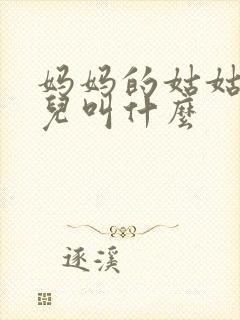 妈妈的姑姑
兒叫什麼
逐溪